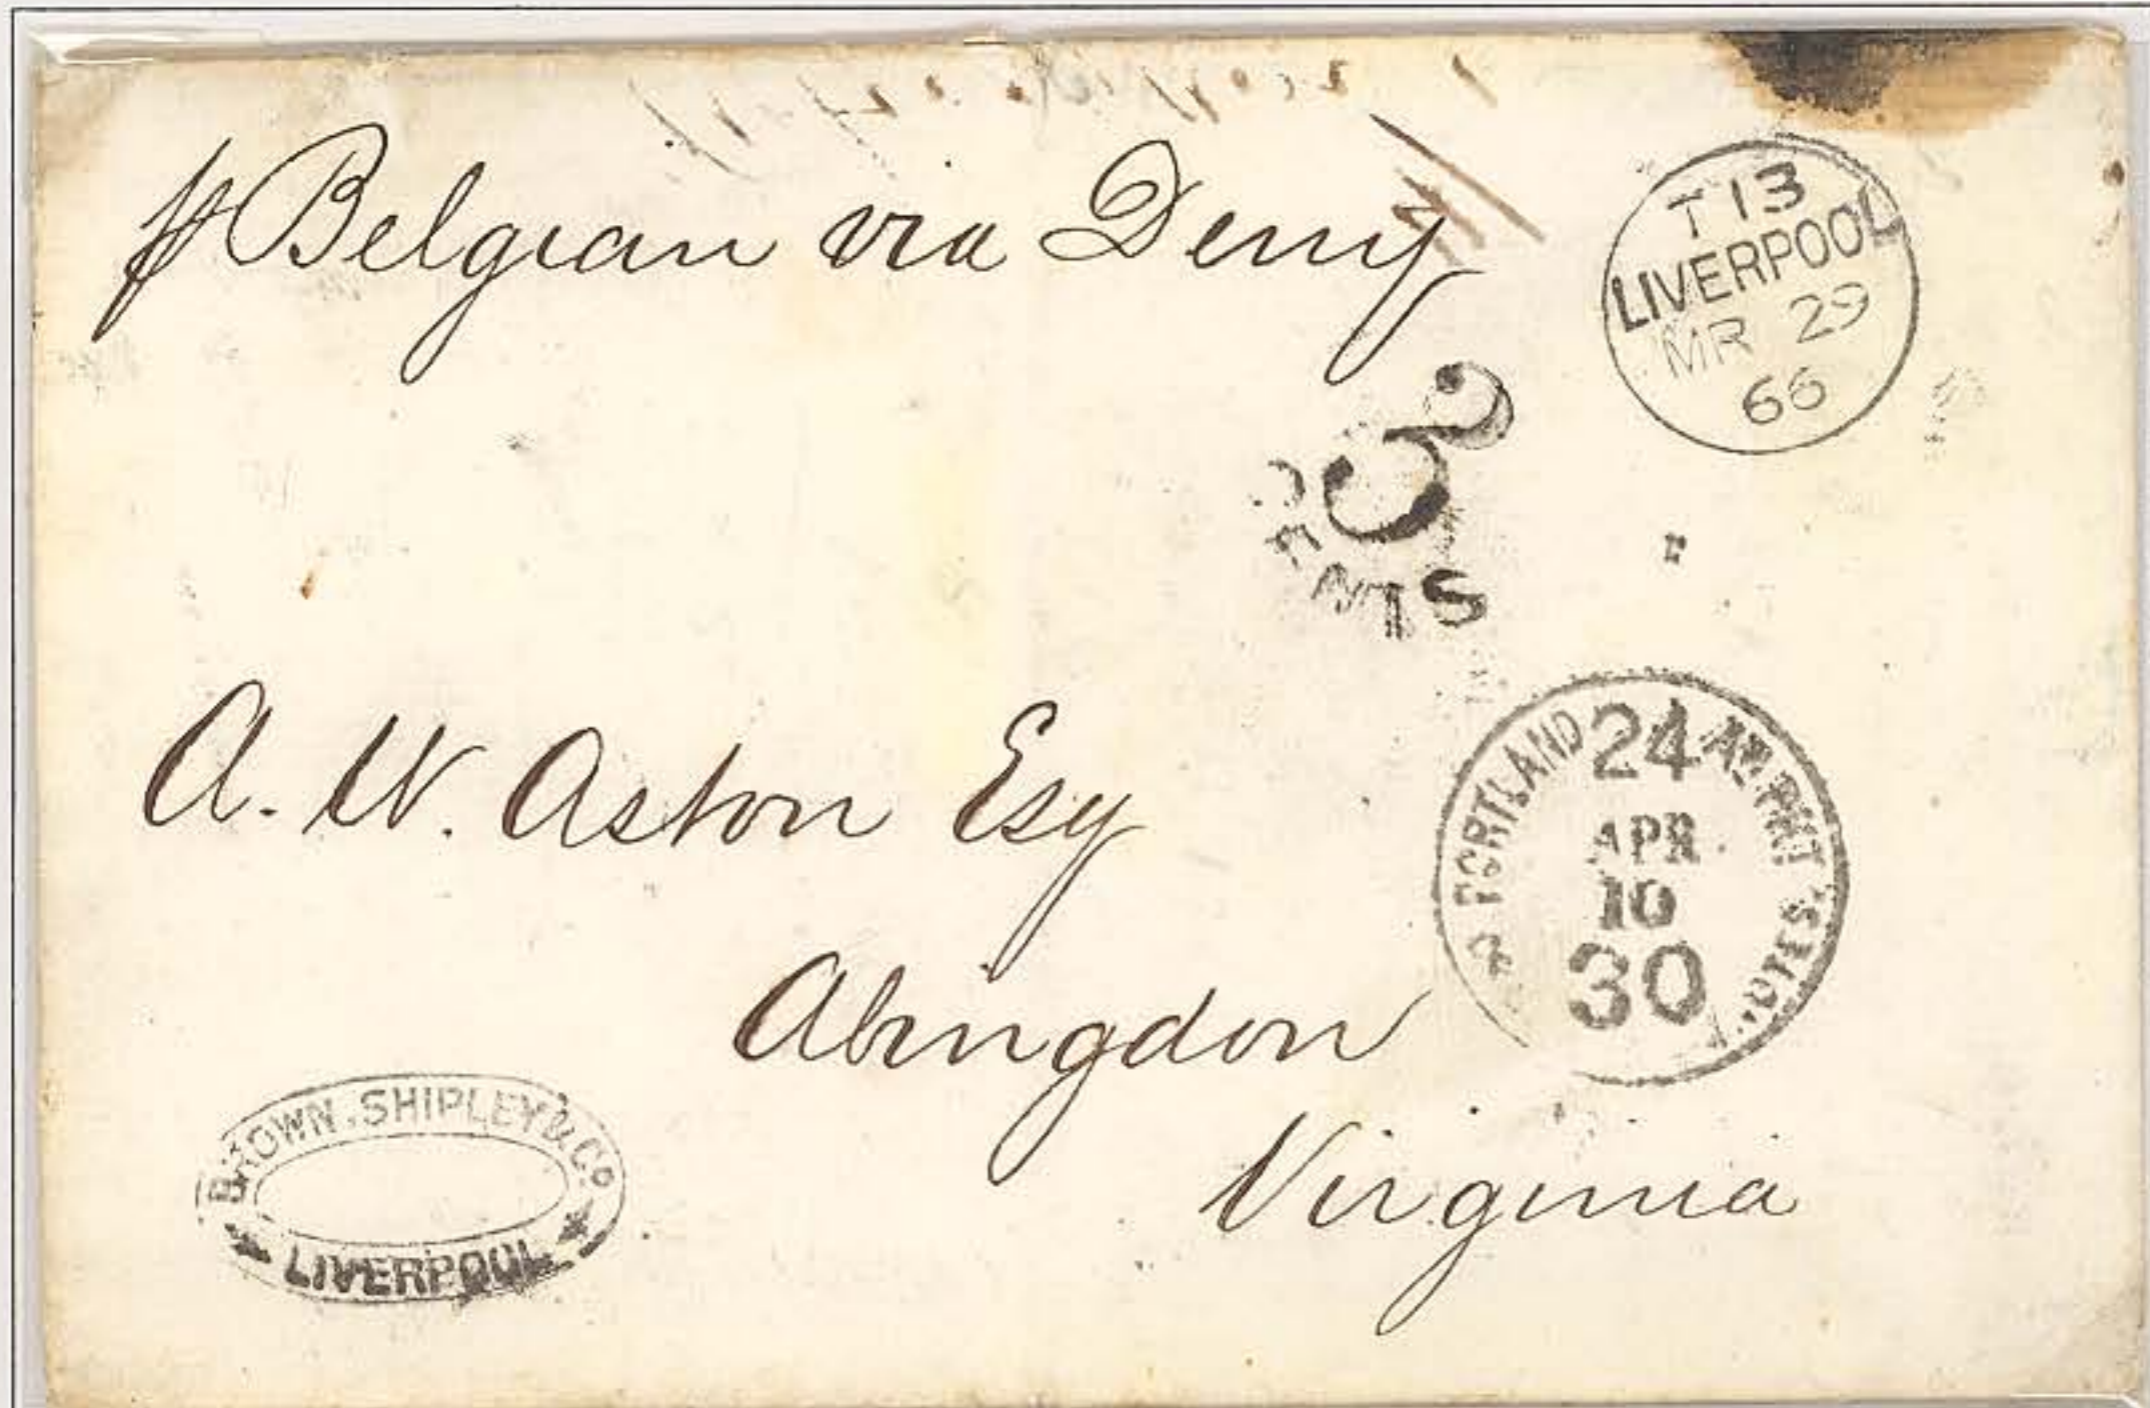 p Belgian via Derry
T 13
LIVERPOOL
MR 29
66
3
CENTS
A. W. Aston Esq
Abingdon
Virginia
PORTLAND 24 AM. PKT
APR
10
30
BROWN. SHIPLEY & Co
LIVERPOOL